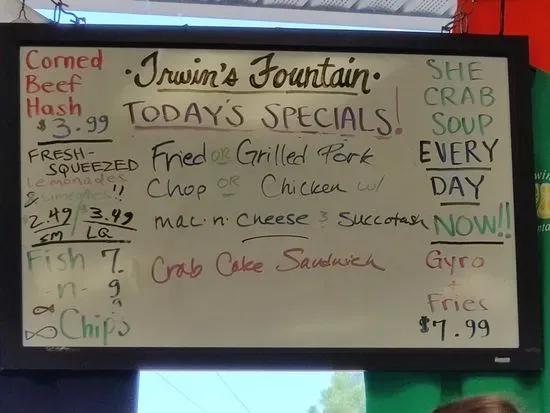 Corned
Beef
Hash
$3.99
FRESH-
SQUEEZED
Lemonades
& Limeades!!
2.49 / 3.49
SM LG
Fish 7.
-n- 9
Chips 9
·Irwin's Fountain·
TODAY'S SPECIALS!
Fried or Grilled Pork
Chop OR Chicken w/
mac·n·cheese & Succotash
Crab Cake Sandwich
SHE
CRAB
SOUP
EVERY
DAY
NOW!!
Gyro
+
Fries
$7.99